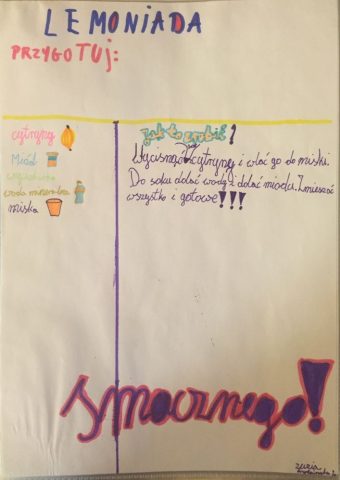 LEMONIADA
PRZYGOTUJ:
cytryny
Miód
woda mineralna
miska
jak to zrobić?
Wycisnąć cytryny i wlać go do miski.
Do soku dolać wodę i dolać miodu. Zmieszać
wszystko i gotowe!!!
smacznego!
zuzia